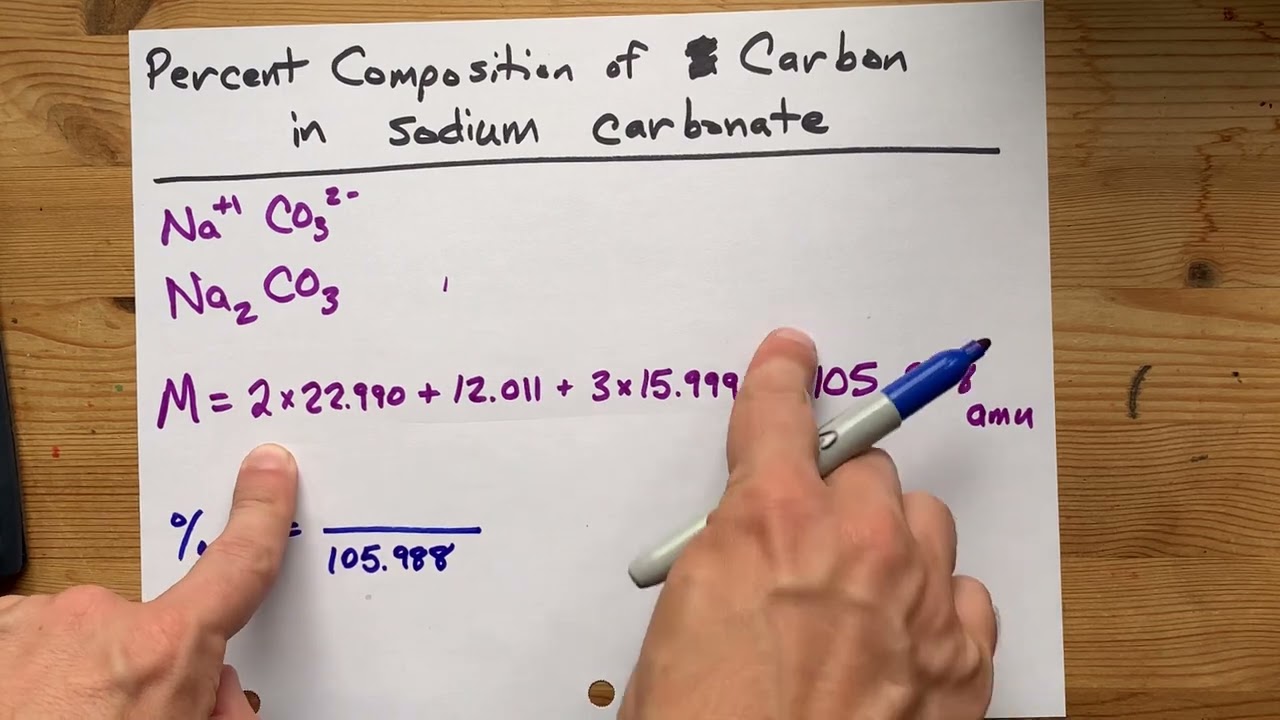 Percent Composition of Carbon
in sodium carbonate
Na⁺¹ CO₃²⁻
Na₂ CO₃
M = 2×22.990 + 12.011 + 3×15.999 105
amu
% =
105.988